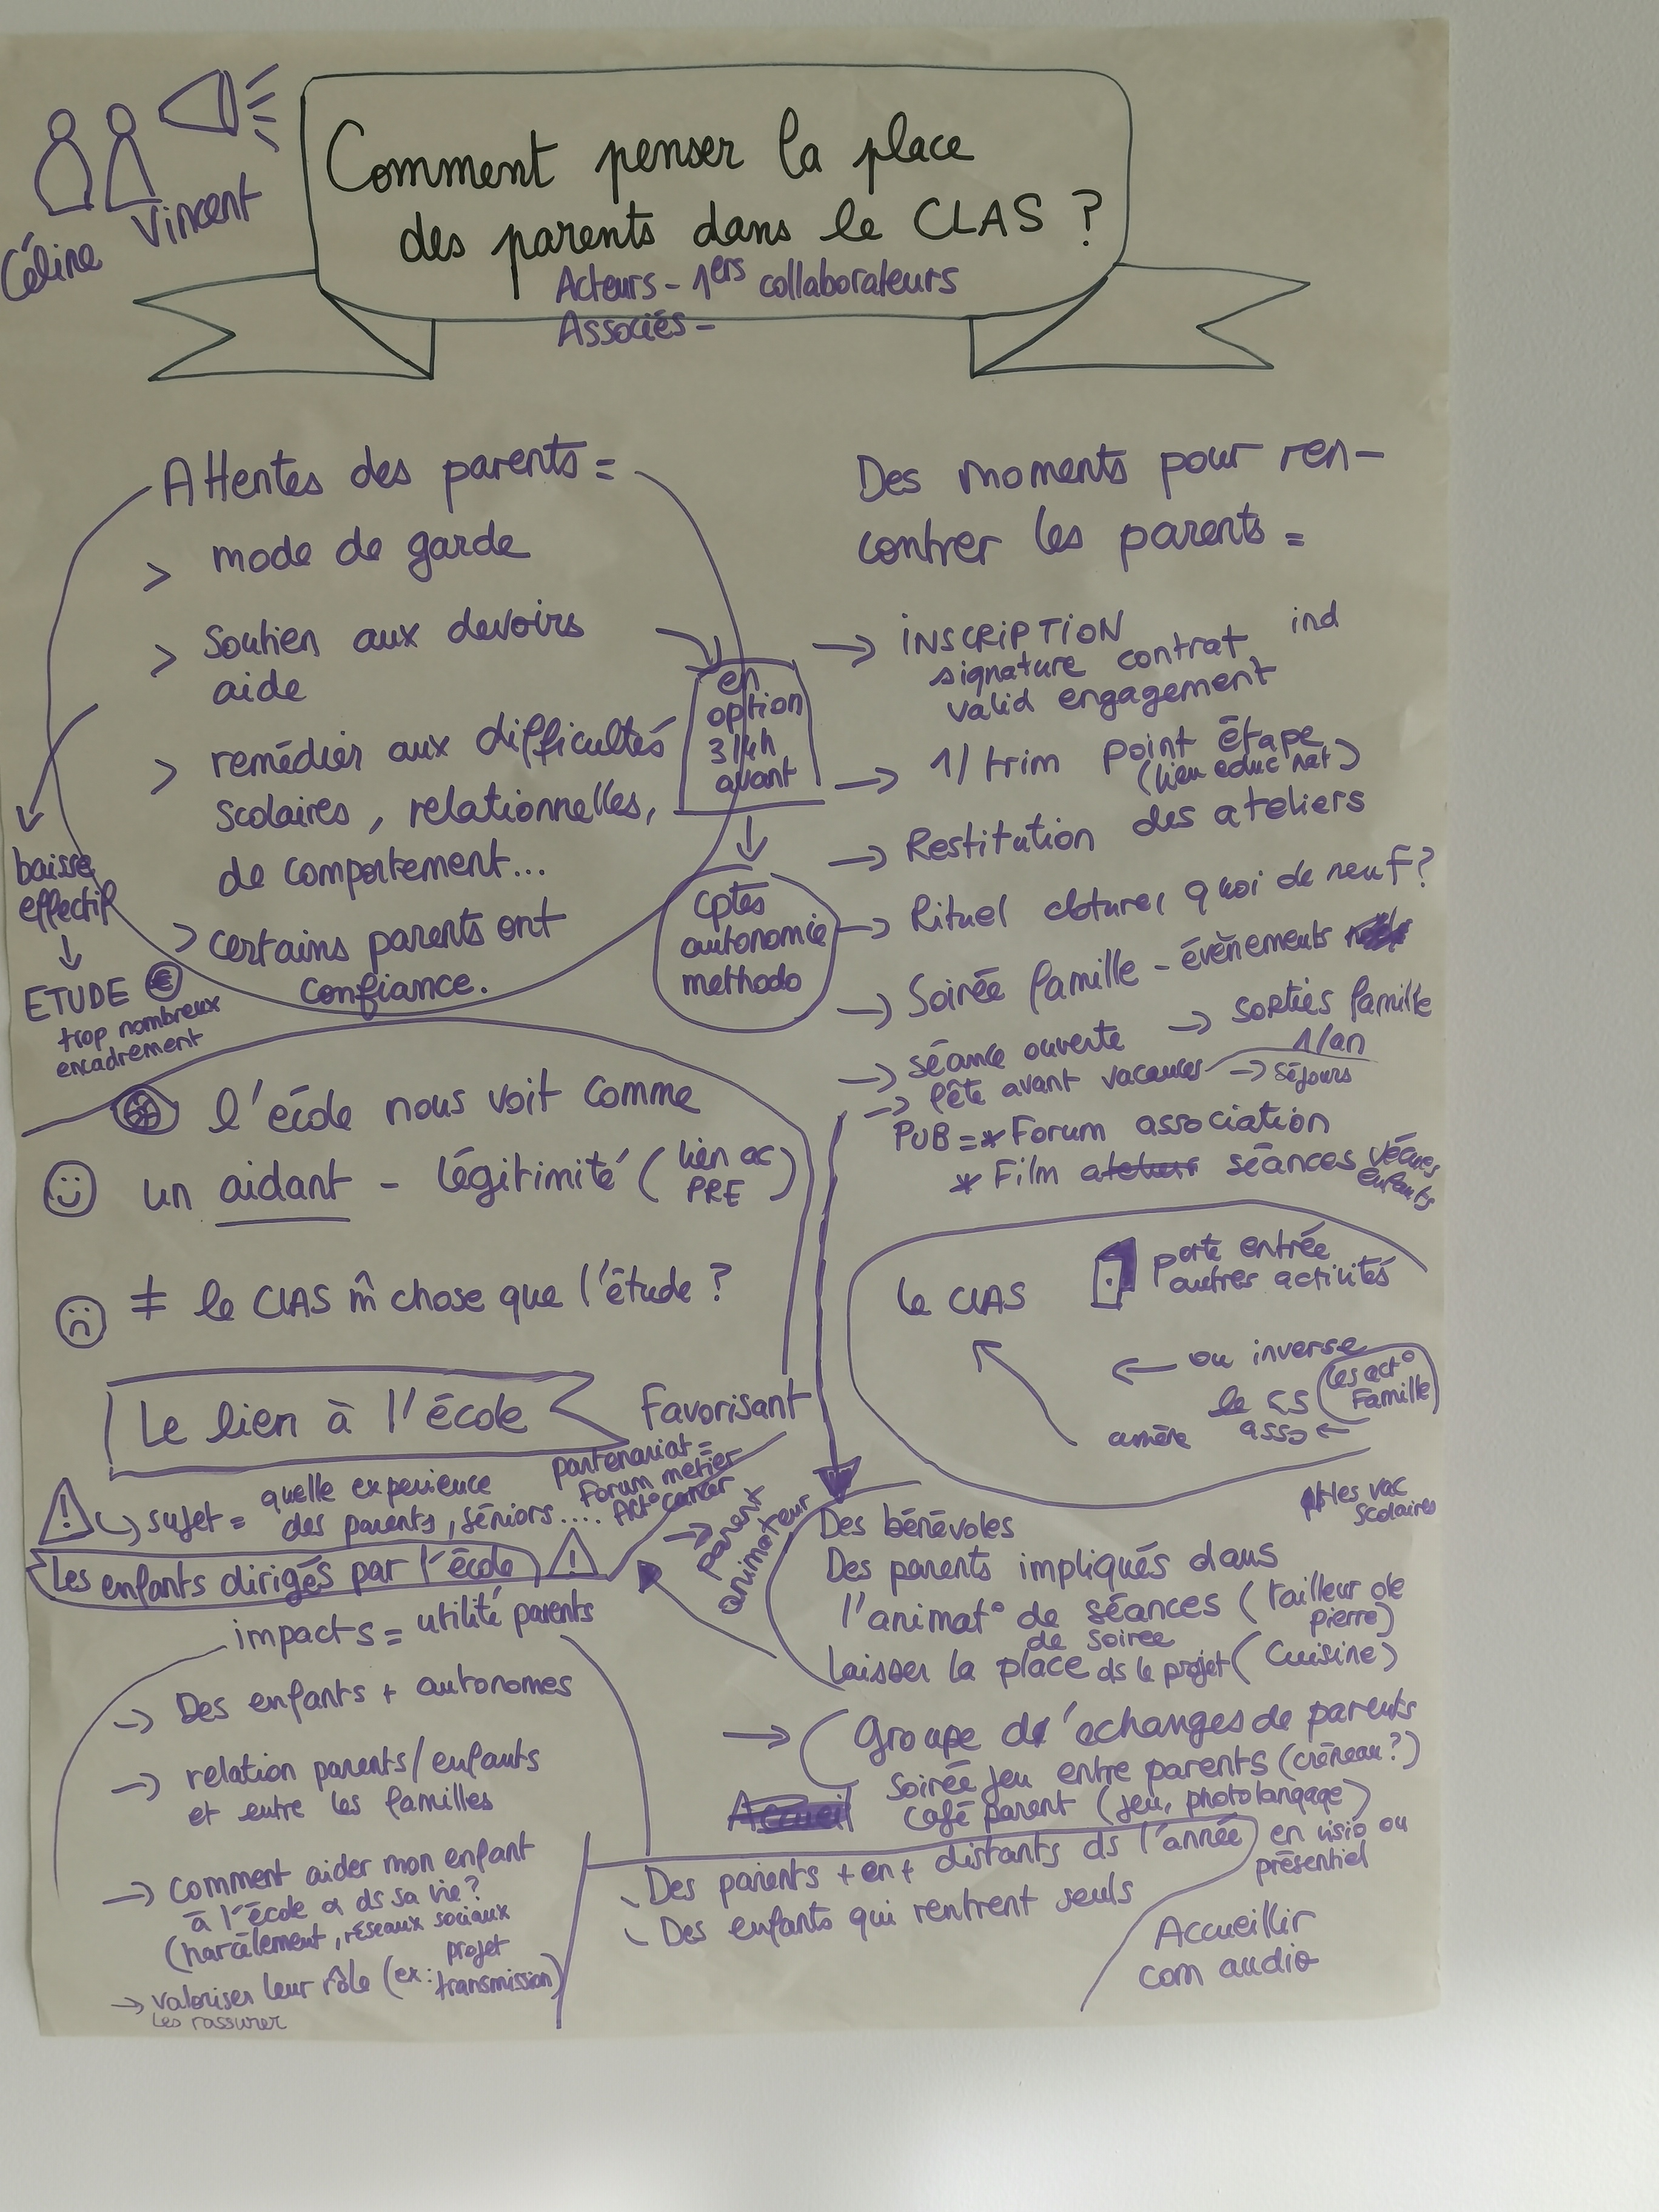 Céline Vincent
Comment penser la place
des parents dans le CLAS ?
Acteurs - 1ers collaborateurs
Associés -
Attentes des parents =
> mode de garde
> Soutien aux devoirs
aide
> remédier aux difficultés
scolaires, relationnelles,
de comportement...
> certains parents ont
confiance.
en
option
3/4h
avant
cptes
autonomie
methodo
baisse
effectif
ETUDE €
trop nombreux
encadrement
l'école nous voit comme
un aidant - légitimité (lien ac
PRE)
≠ le CLAS m̂ chose que l'étude ?
Des moments pour ren-
contrer les parents =
→ INSCRIPTION ind
signature contrat
valid engagement
→ 1/trim point étape
(lien educ nat)
→ Restitution des ateliers
→ Rituel cloture, quoi de neuf ?
→ Soirée famille - évènements
→ séance ouverte
→ Sorties famille
1/an
→ fête avant vacances → séjours
PUB = * Forum association
* Film séances
enfants
le CLAS
porte entrée
autres activités
← ou inverse
le CS
asso ←
les act°
Famille
amène
les vac
scolaires
Le lien à l'école
Favorisant
partenariat =
Forum metier
Act° cancer
→ sujet = quelle experience
des parents, séniors....
Les enfants dirigés par l'école
→ parent
animateur
impacts = utilité parents
→ Des enfants + autonomes
→ relation parents/enfants
et entre les familles
→ Comment aider mon enfant
à l'école & ds sa vie ?
(harcèlement, réseaux sociaux
→ valoriser leur rôle (ex : projet
transmission)
Les rassurer
Des bénévoles
Des parents impliqués dans
l'animat° de séances (tailleur de
pierre)
de soirée
laisser la place ds le projet (Cuisine)
→ Groupe d'echanges de parents
Soirée jeu entre parents (créneau ?)
Accueil
Café parent (jeu, photolangage)
en visio ou
présentiel
Des parents + en + distants ds l'année
Des enfants qui rentrent seuls
Accueillir
com audio